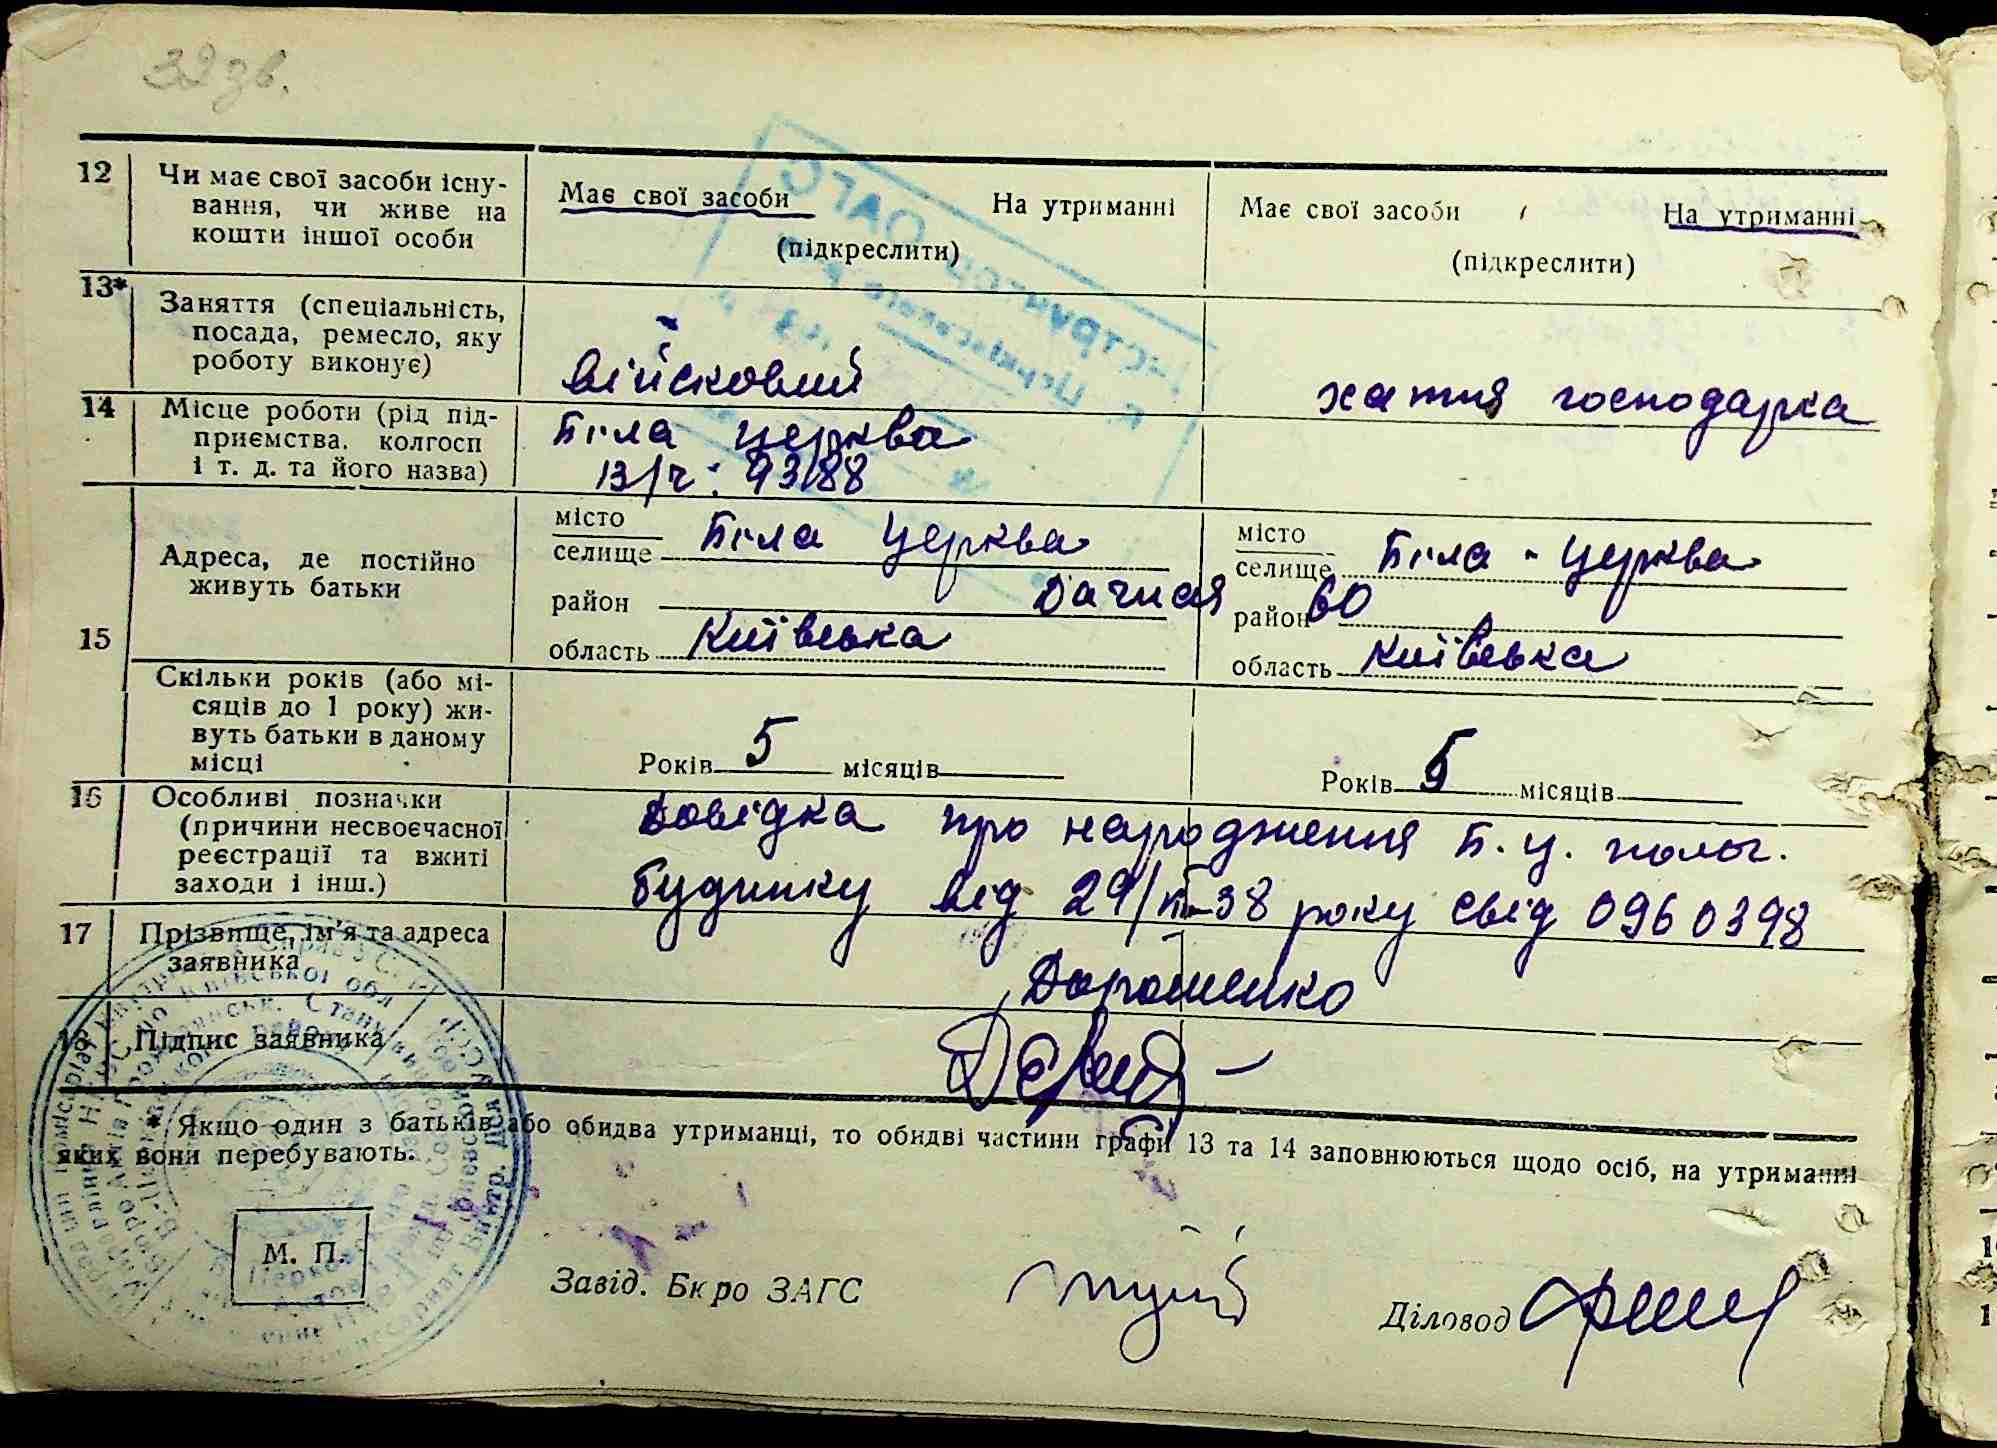 32 зв.
12 Чи має свої засоби існу-
вання, чи живе на
кошти іншої особи
Має свої засоби На утриманні
(підкреслити)
Має свої засоби На утриманні
(підкреслити)
13* Заняття (спеціальність,
посада, ремесло, яку
роботу виконує)
військовий
хатня господарка
14 Місце роботи (рід під-
приємства, колгосп
і т. д. та його назва)
Біла церква
в/ч: 9388
15 Адреса, де постійно
живуть батьки
місто
селище Біла Церква
район Дачная 60
область Київська
місто
селище Біла-Церква
район
область Київська
Скільки років (або мі-
сяців до 1 року) жи-
вуть батьки в даному
місці
Років 5 місяців
Років 5 місяців
16 Особливі позначки
(причини несвоєчасної
реєстрації та вжиті
заходи і інш.)
Довідка про народження Б. Ц. полог.
будинку від 29/ 38 року свід 0960398
17 Прізвище, ім'я та адреса
заявника
Дорошенко
18 Підпис заявника
* Якщо один з батьків або обидва утриманці, то обидві частини графи 13 та 14 заповнюються щодо осіб, на утриманні
яких вони перебувають.
М. П.
Завід. Бюро ЗАГС
Діловод